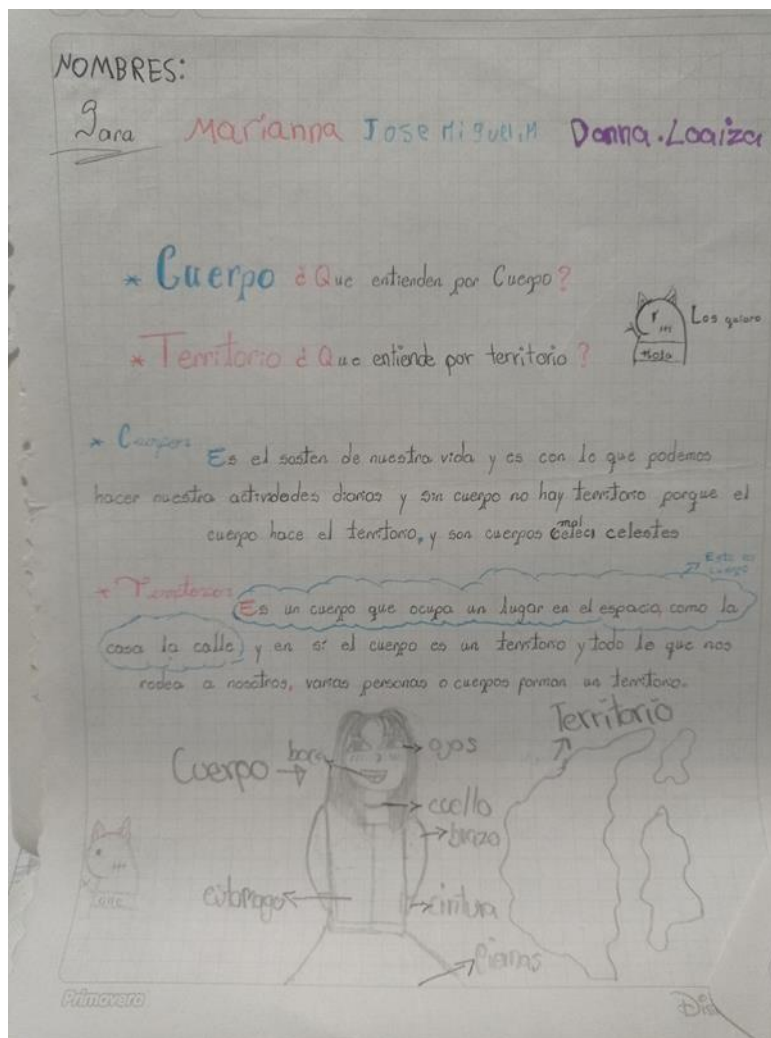 NOMBRES:
Sara Marianna Jose Miguel.M Donna.Loaiza
* Cuerpo ¿Que entienden por Cuerpo?
Los quiero
* Territorio ¿Que entiende por territorio?
Hola
* Cuerpo: Es el sosten de nuestra vida y es con lo que podemos
hacer nuestra actividades diarias y sin cuerpo no hay territorio porque el
cuerpo hace el territorio, y son cuerpos celestes
Esto es cuerpo
* Territorio: Es un cuerpo que ocupa un lugar en el espacio, como la
casa la calle) y en si el cuerpo es un territorio y todo lo que nos
rodea a nosotros, varias personas o cuerpos forman un territorio.
Territorio
Cuerpo
boca
ojos
cuello
brazo
estomago
cintura
piernas
Primavera